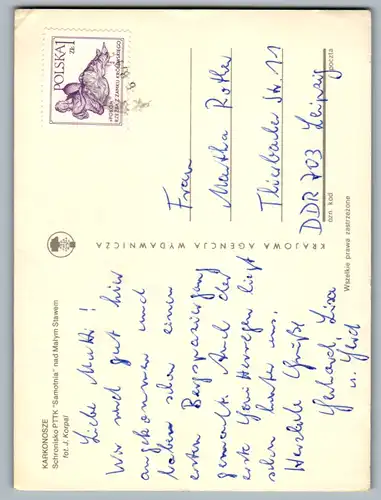 KARKONOSZE
Schronisko PTTK "Samotnia" nad Małym Stawem
fot. J. Korpal
Liebe Mutti!
Wir sind gut hier
angekommen und
haben schon einen
ersten Bergspaziergang
gemacht. Auch der
erste Gewitterregen liegt
schon hinter uns.
Herzliche Grüße
Gerhard, Lisa
u.
KRAJOWA AGENCJA WYDAWNICZA
POLSKA 1 ZŁ
«POEZJA»
RZEŹBA Z ZAMKU KRÓLEWSKIEGO
Frau
Martha Rother
Thierbacher Str. 11
DDR 703 Leipzig
ozn. kod
poczta
Wszelkie prawa zastrzeżone